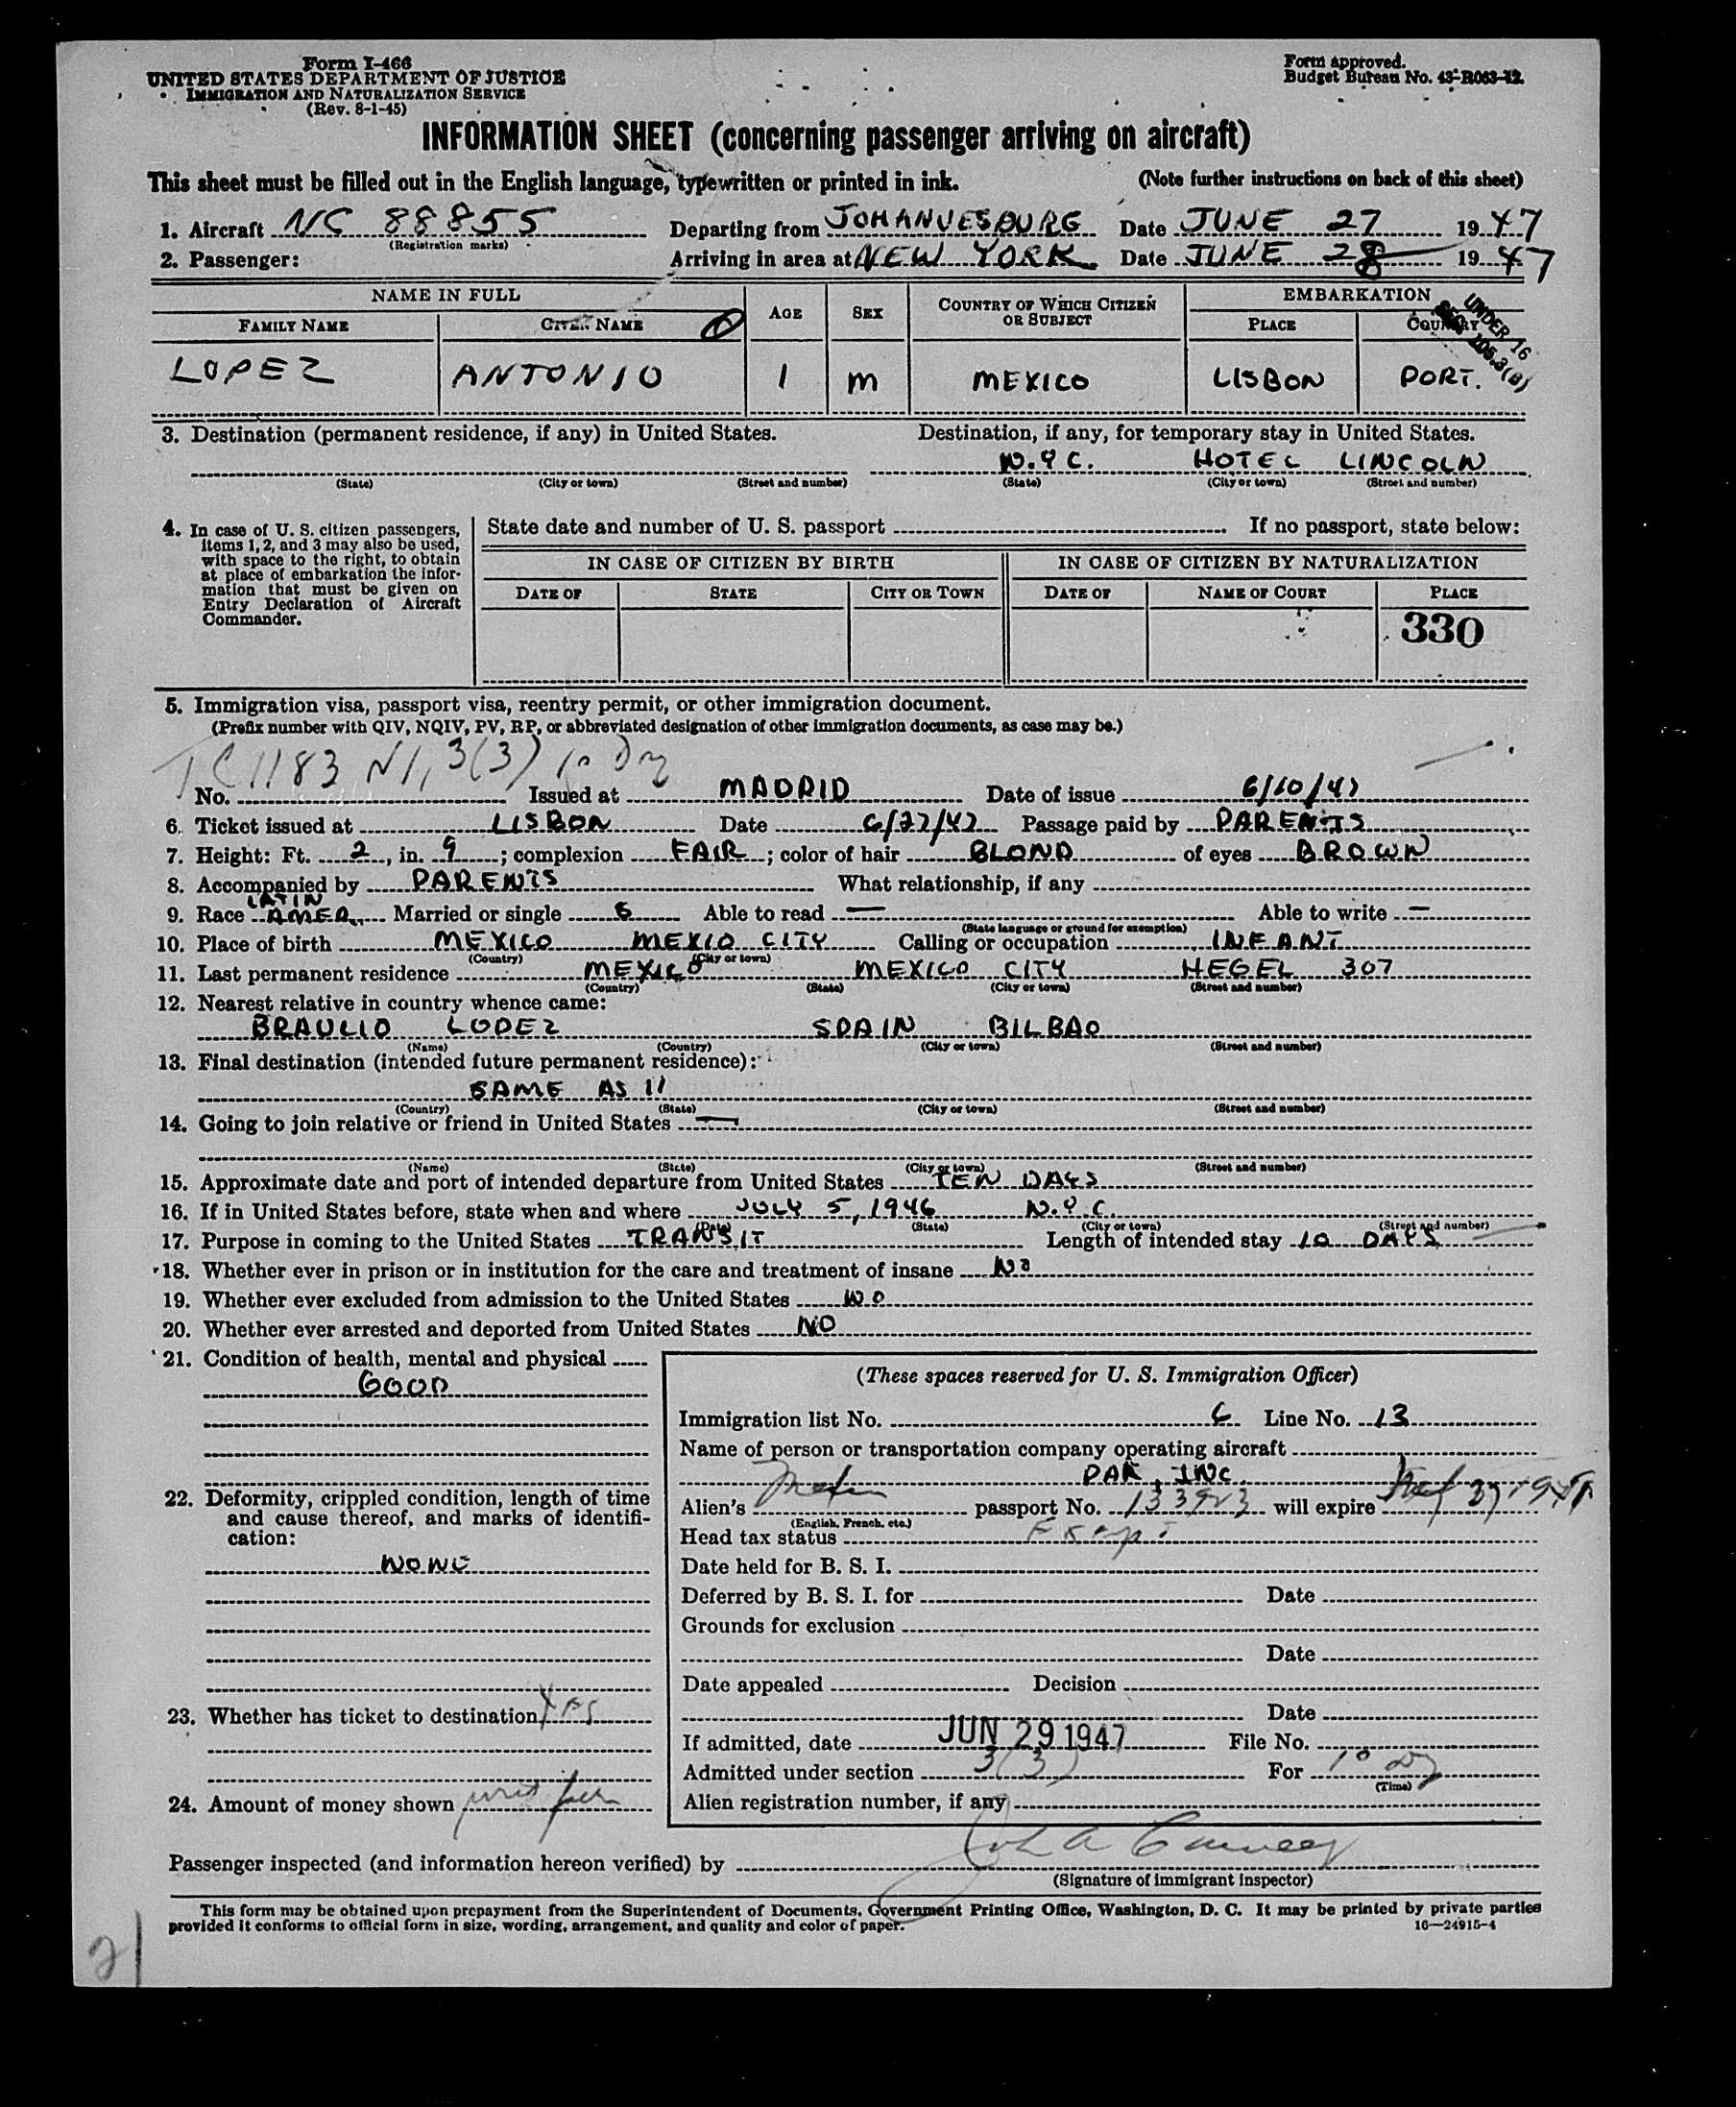 Form I-466
UNITED STATES DEPARTMENT OF JUSTICE
IMMIGRATION AND NATURALIZATION SERVICE
(Rev. 8-1-45)
Form approved.
Budget Bureau No. 43-R063-42.
INFORMATION SHEET (concerning passenger arriving on aircraft)
This sheet must be filled out in the English language, typewritten or printed in ink. (Note further instructions on back of this sheet)
1. Aircraft NC 88855 Departing from JOHANNESBURG Date JUNE 27 1947
(Registration marks)
2. Passenger: Arriving in area at NEW YORK Date JUNE 28 1947
NAME IN FULL AGE SEX COUNTRY OF WHICH CITIZEN OR SUBJECT EMBARKATION
FAMILY NAME GIVEN NAME PLACE COUNTRY
UNDER 16
SEC 105.3(B)
LOPEZ ANTONIO 1 M MEXICO LISBON PORT.
3. Destination (permanent residence, if any) in United States. Destination, if any, for temporary stay in United States.
N.Y C. HOTEL LINCOLN
(State) (City or town) (Street and number) (State) (City or town) (Street and number)
4. In case of U. S. citizen passengers, items 1, 2, and 3 may also be used, with space to the right, to obtain at place of embarkation the information that must be given on Entry Declaration of Aircraft Commander.
State date and number of U. S. passport If no passport, state below:
IN CASE OF CITIZEN BY BIRTH IN CASE OF CITIZEN BY NATURALIZATION
DATE OF STATE CITY OR TOWN DATE OF NAME OF COURT PLACE
330
5. Immigration visa, passport visa, reentry permit, or other immigration document.
(Prefix number with QIV, NQIV, PV, RP, or abbreviated designation of other immigration documents, as case may be.)
TC 1183 NI, 3(3) 10 Dy
No. Issued at MADRID Date of issue 6/10/47
6. Ticket issued at LISBON Date 6/27/47 Passage paid by PARENTS
7. Height: Ft. 2, in. 9; complexion FAIR; color of hair BLOND of eyes BROWN
8. Accompanied by PARENTS What relationship, if any
9. Race LATIN AMER. Married or single S Able to read — Able to write —
(State language or ground for exemption)
10. Place of birth MEXICO MEXIO CITY Calling or occupation INFANT
(Country) (City or town)
11. Last permanent residence MEXICO MEXICO CITY HEGEL 307
(Country) (State) (City or town) (Street and number)
12. Nearest relative in country whence came:
BRAULIO LOPEZ SPAIN BILBAO
(Name) (Country) (City or town) (Street and number)
13. Final destination (intended future permanent residence):
SAME AS 11
(Country) (State) (City or town) (Street and number)
14. Going to join relative or friend in United States —
(Name) (State) (City or town) (Street and number)
15. Approximate date and port of intended departure from United States TEN DAYS
16. If in United States before, state when and where JULY 5, 1946 N.Y.C.
(Date) (State) (City or town) (Street and number)
17. Purpose in coming to the United States TRANSIT Length of intended stay 10 DAYS
18. Whether ever in prison or in institution for the care and treatment of insane NO
19. Whether ever excluded from admission to the United States NO
20. Whether ever arrested and deported from United States NO
21. Condition of health, mental and physical
GOOD
22. Deformity, crippled condition, length of time and cause thereof, and marks of identification:
NONE
23. Whether has ticket to destination Yes
24. Amount of money shown
(These spaces reserved for U. S. Immigration Officer)
Immigration list No. 6 Line No. 13
Name of person or transportation company operating aircraft
PAA, INC.
Alien's passport No. 133923 will expire
(English, French, etc.)
Head tax status Exempt
Date held for B. S. I.
Deferred by B. S. I. for Date
Grounds for exclusion
Date
Date appealed Decision
Date
If admitted, date JUN 29 1947 File No.
Admitted under section 3(3) For 10 Dy
(Time)
Alien registration number, if any
Passenger inspected (and information hereon verified) by
(Signature of Immigrant Inspector)
This form may be obtained upon prepayment from the Superintendent of Documents, Government Printing Office, Washington, D. C. It may be printed by private parties
provided it conforms to official form in size, wording, arrangement, and quality and color of paper.
16—24915-4
21